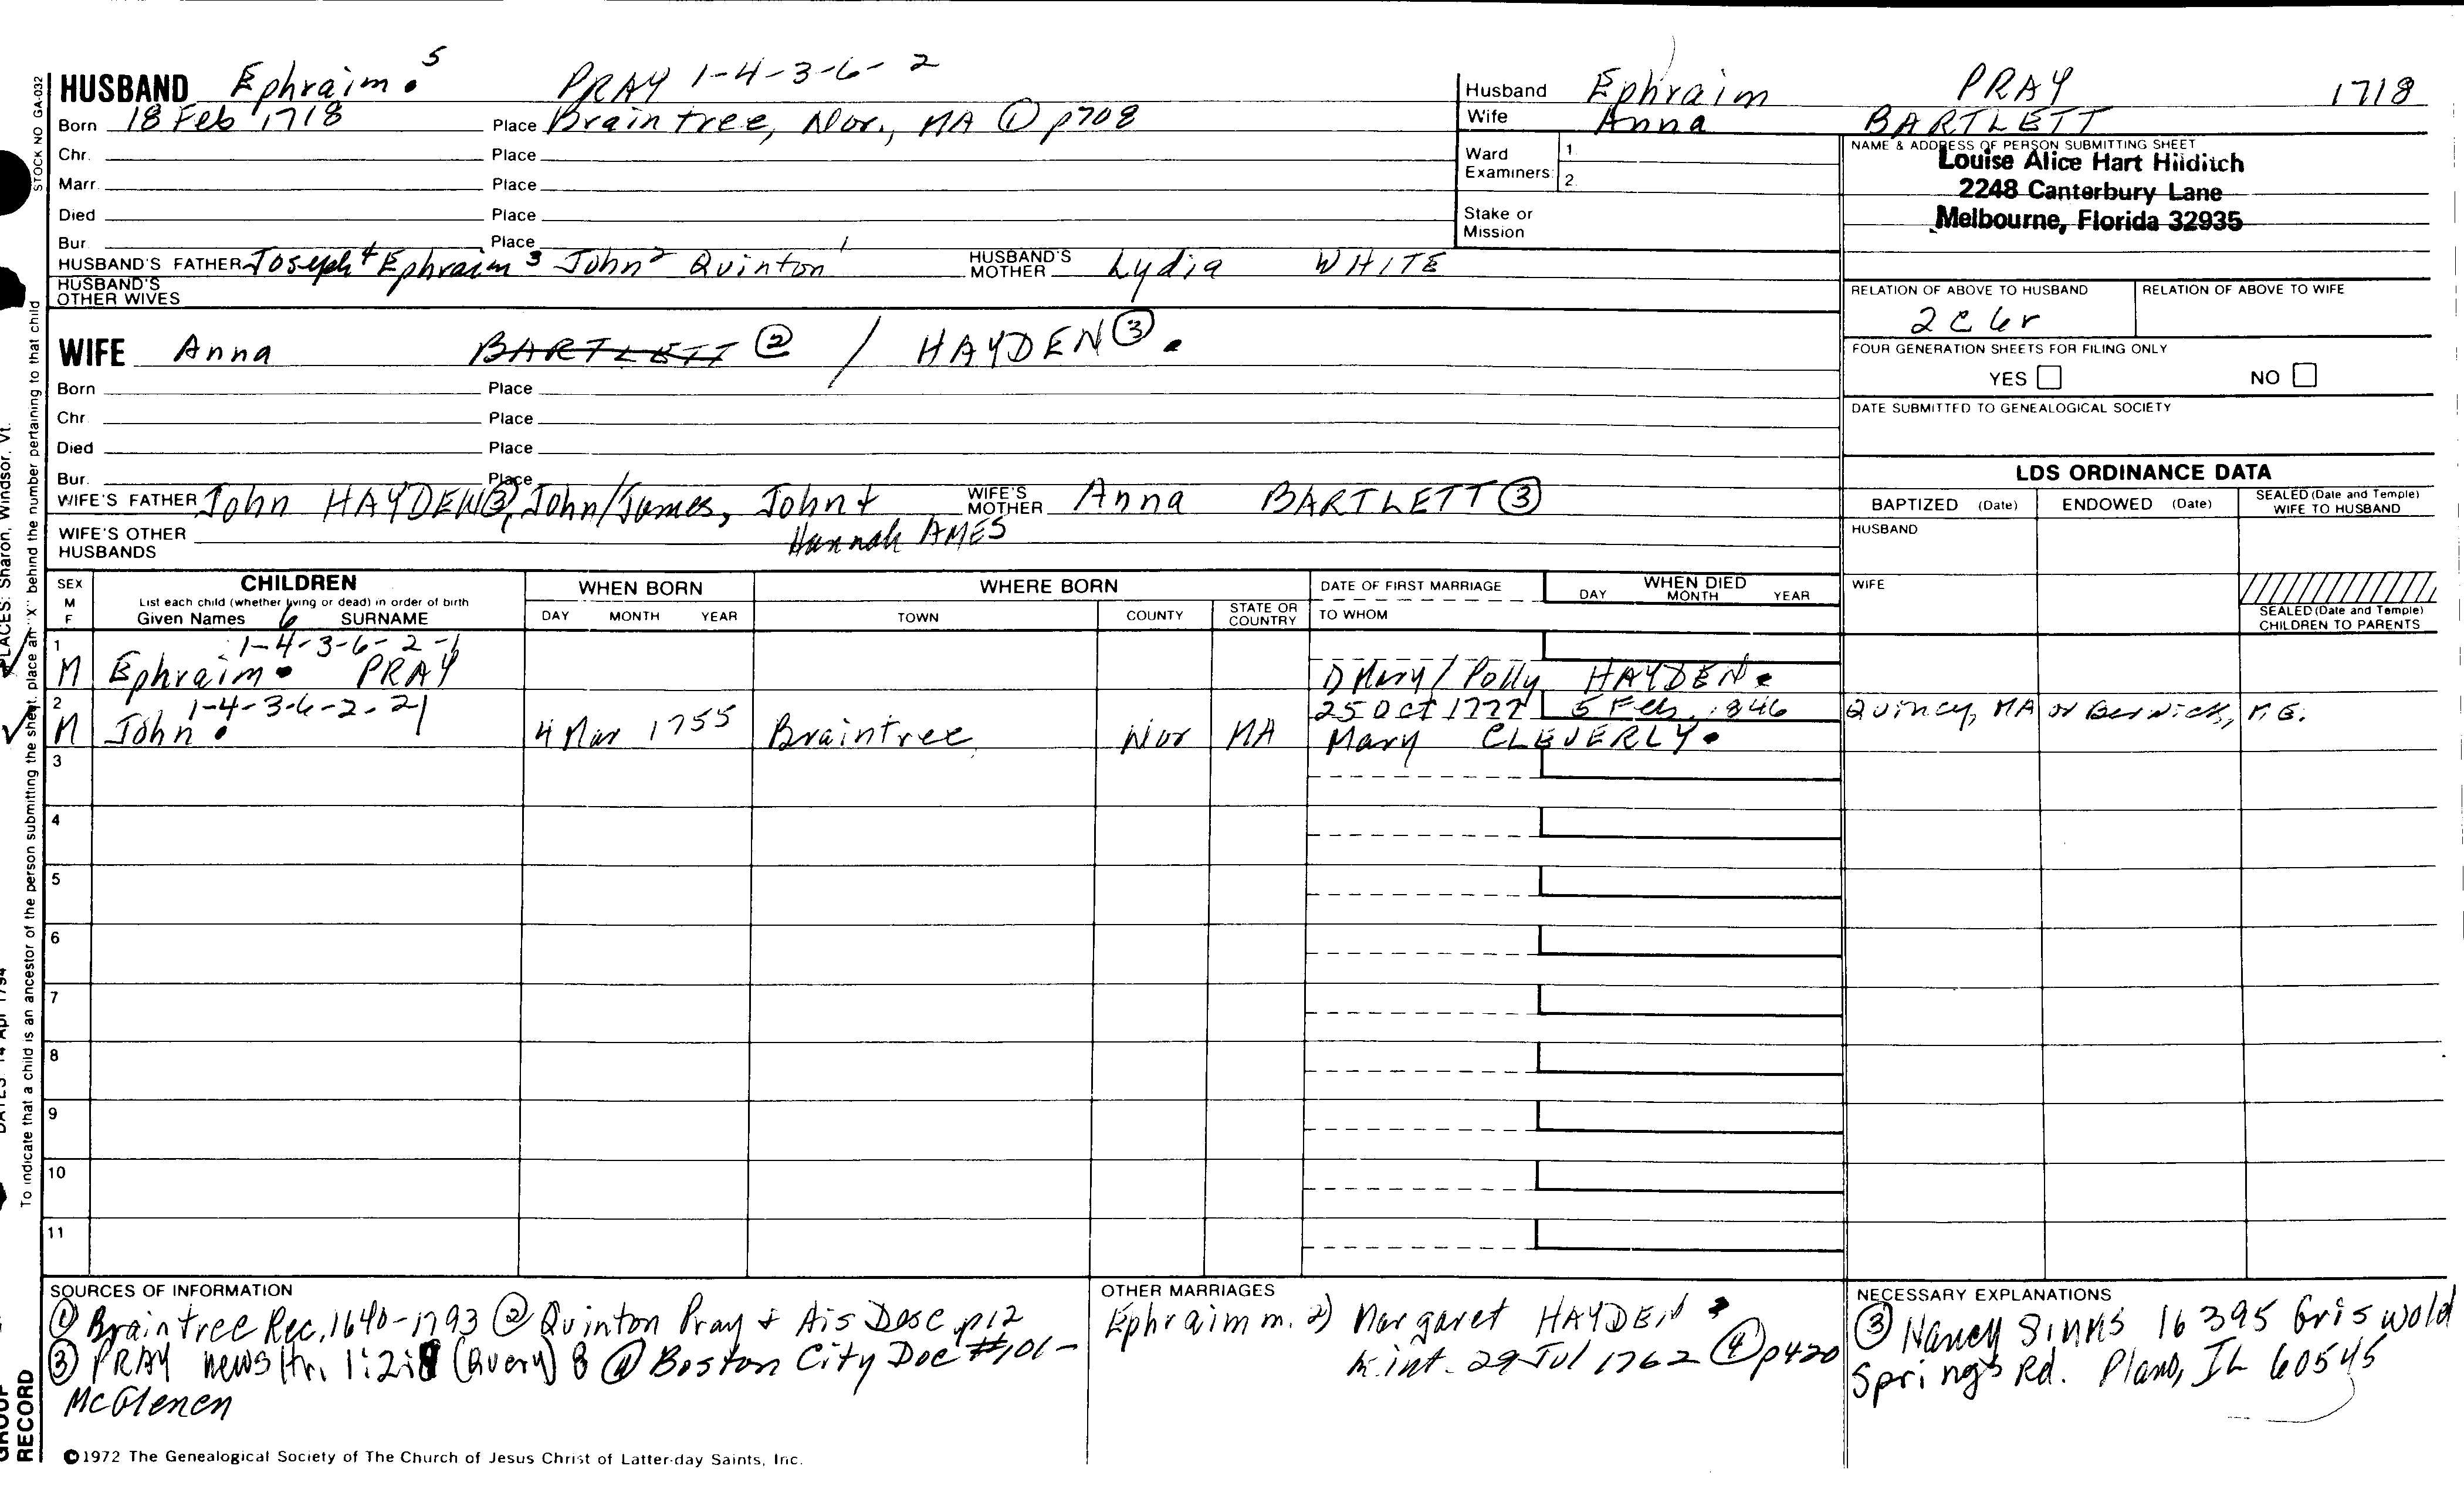 HUSBAND Ephraim • 5 PRAY 1-4-3-6-2
Born 18 Feb 1718 Place Braintree, Nor., MA ① p708
Chr. Place
Marr. Place
Died Place
Bur. Place
HUSBAND'S FATHER Joseph 4 Ephraim 3 John 2 Quinton 1 HUSBAND'S MOTHER Lydia WHITE
HUSBAND'S OTHER WIVES
Husband Ephraim PRAY 1718
Wife Anna BARTLETT
Ward Examiners: 1. 2.
Stake or Mission
NAME & ADDRESS OF PERSON SUBMITTING SHEET
Louise Alice Hart Hilditch
2248 Canterbury Lane
Melbourne, Florida 32935
RELATION OF ABOVE TO HUSBAND RELATION OF ABOVE TO WIFE
2 c 6r
FOUR GENERATION SHEETS FOR FILING ONLY
YES NO
DATE SUBMITTED TO GENEALOGICAL SOCIETY
WIFE Anna BARTLETT ② / HAYDEN ③ •
Born Place
Chr. Place
Died Place
Bur. Place
WIFE'S FATHER John HAYDEN ③, John/James, John + Hannah AMES WIFE'S MOTHER Anna BARTLETT ③
WIFE'S OTHER HUSBANDS
LDS ORDINANCE DATA
BAPTIZED (Date) ENDOWED (Date) SEALED (Date and Temple) WIFE TO HUSBAND
HUSBAND
WIFE
SEALED (Date and Temple) CHILDREN TO PARENTS
SEX M F
CHILDREN
List each child (whether living or dead) in order of birth
Given Names 6 SURNAME
WHEN BORN DAY MONTH YEAR
WHERE BORN TOWN COUNTY STATE OR COUNTRY
DATE OF FIRST MARRIAGE TO WHOM
WHEN DIED DAY MONTH YEAR
1 1-4-3-6-2-1
M Ephraim • PRAY D Mary / Polly HAYDEN •
2 1-4-3-6-2-2 25 Oct 1777 5 Feb. 1846 Quincy, MA or Berwick, M.E.
M John • 4 Mar 1755 Braintree Nor MA Mary CLEVERLY •
3
4
5
6
7
8
9
10
11
SOURCES OF INFORMATION
① Braintree Rec. 1640-1793 ② Quinton Pray + His Desc p12
③ PRAY newsltr. 1:2: (Query) 8 ④ Boston City Doc #101-
McGlenen
OTHER MARRIAGES
Ephraim m. 2) Margaret HAYDEN
m. int. 29 Jul 1762 ④ p420
NECESSARY EXPLANATIONS
③ Nancy SIMMS 16395 Griswold
Springs Rd. Plano, IL 60545
©1972 The Genealogical Society of The Church of Jesus Christ of Latter-day Saints, Inc.
STOCK NO GA-032
To indicate that a child is an ancestor of the person submitting the sheet, place an "X" behind the number pertaining to that child
PLACES: Sharon, Windsor, Vt.
DATES 14 Apr 1794
GROUP RECORD